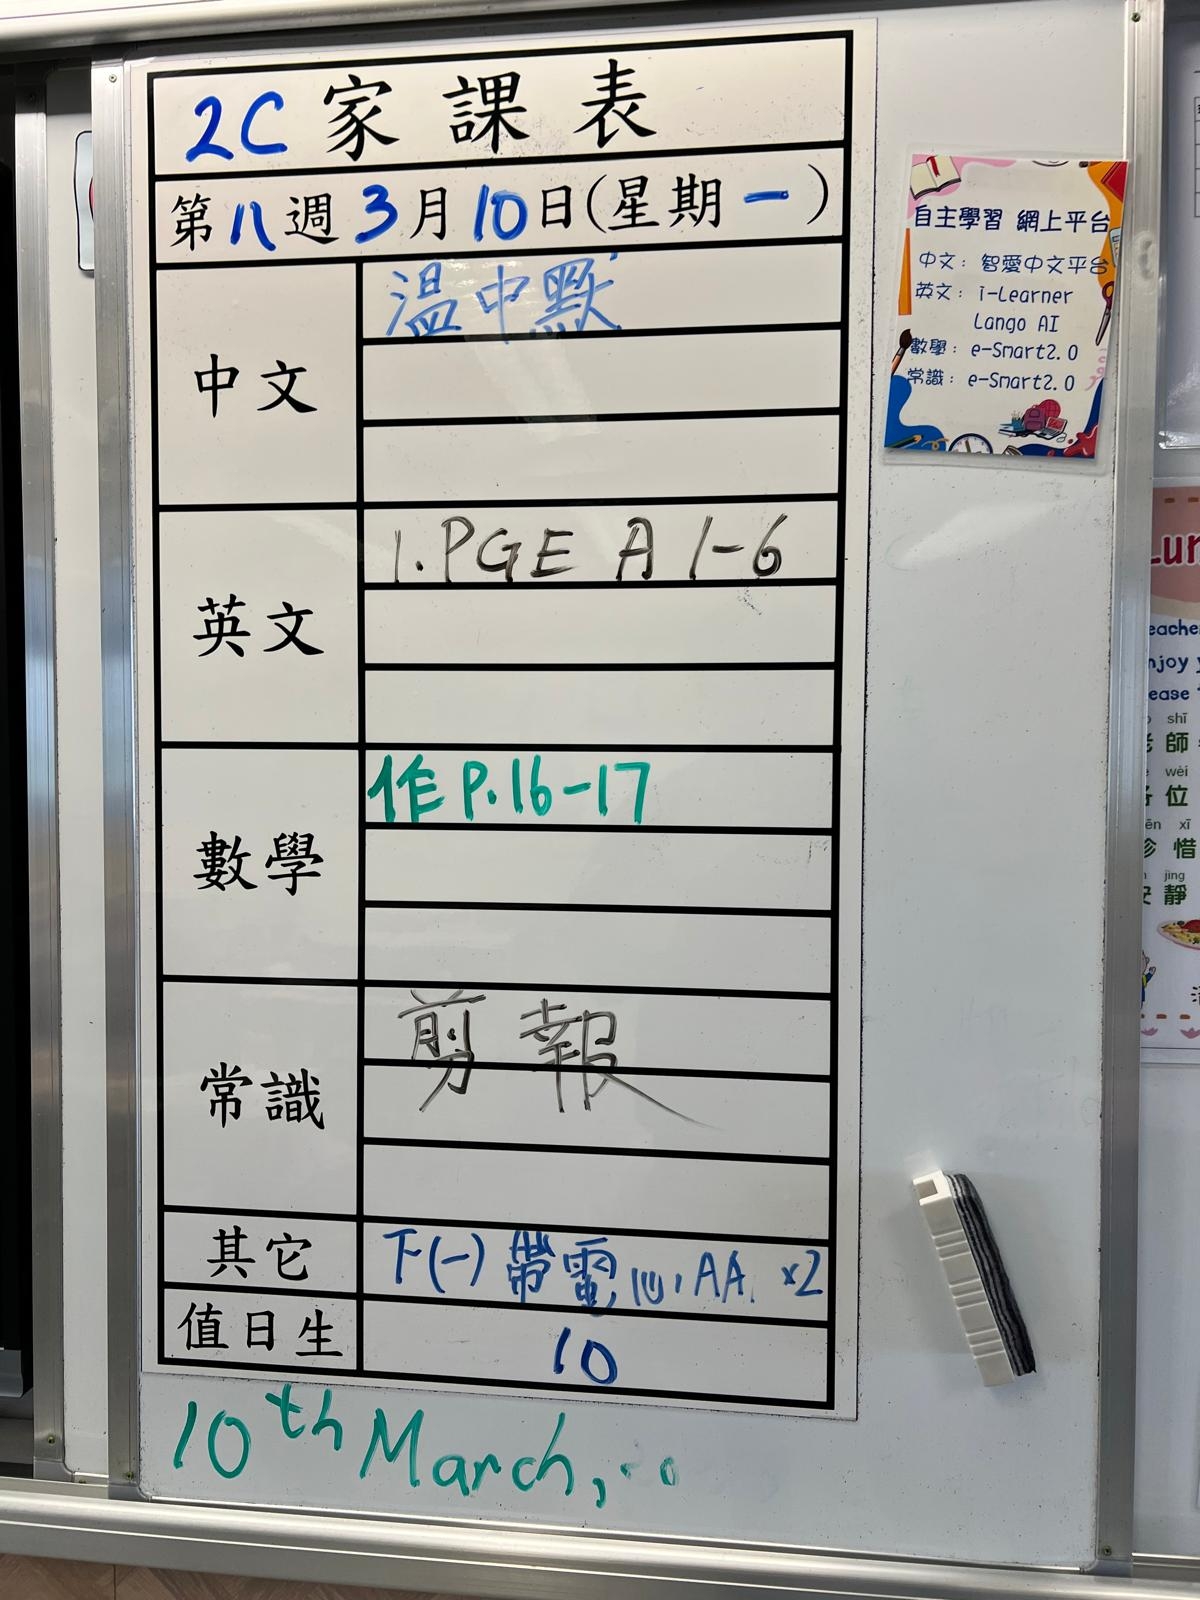 2C 家課表
第八週3月10日(星期一)
中文
溫中默
英文
1. PGE A 1-6
數學
作 P.16-17
常識
剪報
其它
下(一)帶電心, AA ×2
值日生
10
10th March,
自主學習 網上平台
中文：智愛中文平台
英文：i-Learner
Lango AI
數學：e-Smart2.0
常識：e-Smart2.0
shī
師
wèi
位
xī
惜
jìng
靜